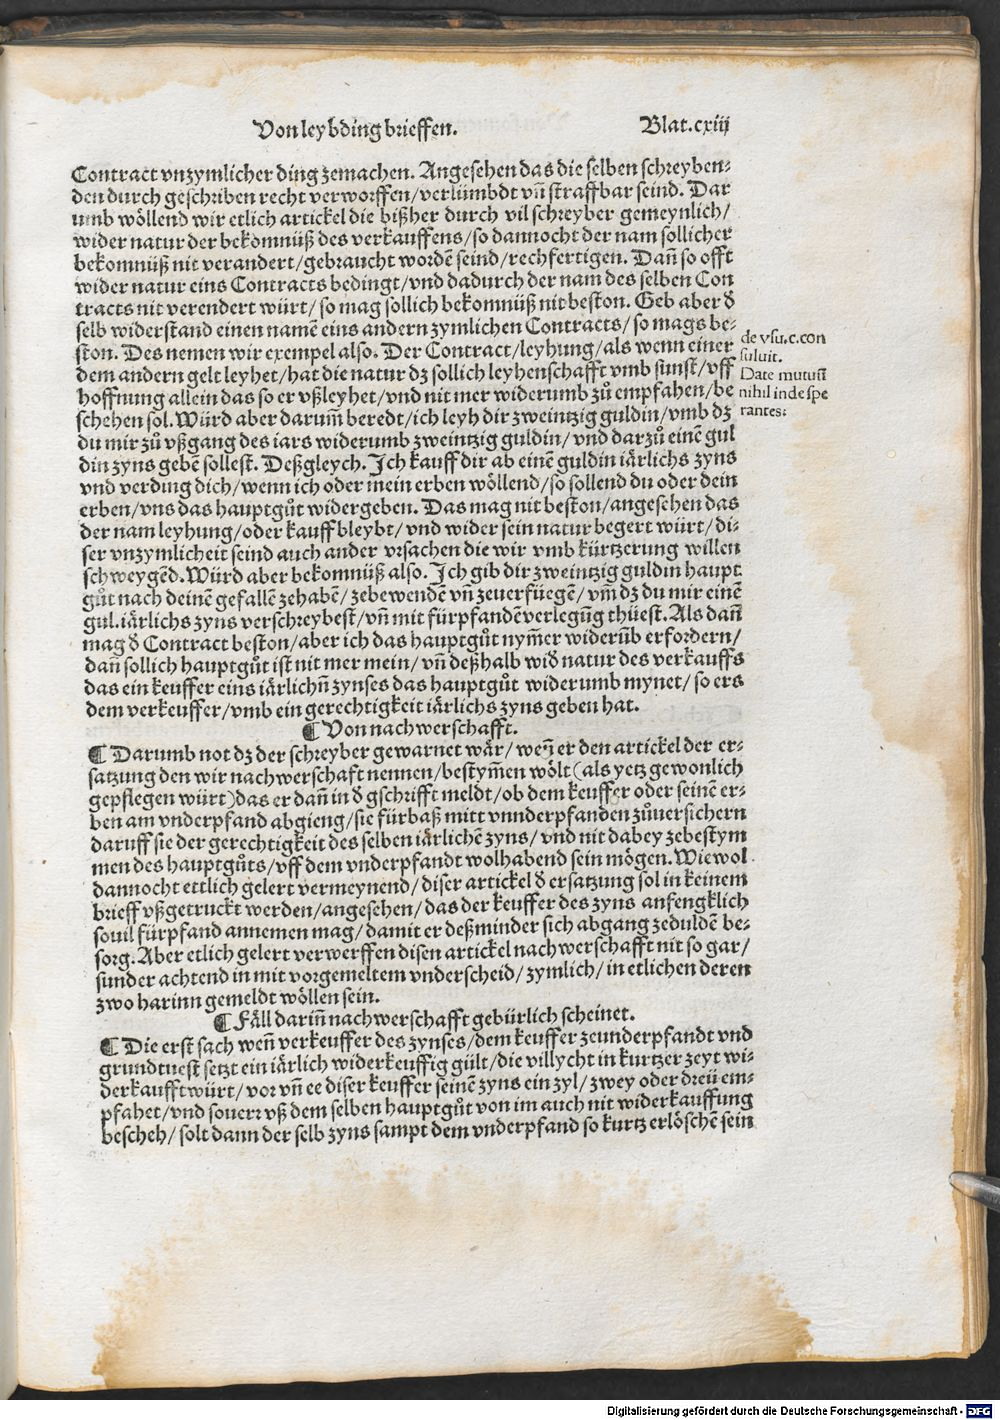 Von leybding brieffen.
Blat.cxiij
Contract vnzymlicher ding zemachen. Angesehen das die selben schreyben⸗
den durch geschriben recht verworffen/verlümbdt vn̄ straffbar seind. Dar
umb wöllend wir etlich artickel die bißher durch vil schreyber gemeynlich/
wider natur der bekomnüß des verkauffens/so dannocht der nam sollicher
bekomnüß nit verandert/gebraucht wordē seind/rechfertigen. Dañ so offt
wider natur eins Contracts bedingt/vnd dadurch der nam des selben Con
tracts nit verendert würt/so mag sollich bekomnüß nit beston. Geb aber d̄
selb widerstand einen namē eins andern zymlichen Contracts/so mags be⸗
ston. Des nemen wir exempel also. Der Contract/leyhung/als wenn einer
dem andern gelt leyhet/hat die natur dz sollich leyhenschafft vmb sunst/vff
hoffnung allein das so er vßleyhet/vnd nit mer widerumb zů empfahen/be
schehen sol. Würd aber darum̄ beredt/ich leyh dir zweintzig guldin/vmb dz
du mir zů vßgang des iars widerumb zweintzig guldin/vnd darzů einē gul
din zyns gebē sollest. Deßgleych. Ich kauff dir ab einē guldin iärlichs zyns
vnd verding dich/wenn ich oder mein erben wöllend/so sollend du oder dein
erben/vns das hauptgůt widergeben. Das mag nit beston/angesehen das
der nam leyhung/oder kauff bleybt/vnd wider sein natur begert würt/di⸗
ser vnzymlicheit seind auch ander vrsachen die wir vmb kürtzerung willen
schweygēd. Würd aber bekomnüß also. Ich gib dir zweintzig guldin haupt
gůt nach deinē gefallē zehabē/zebewendē vn̄ zeuerfüegē/vm̄ dz du mir einē
gul. iärlichs zyns verschreybest/vn̄ mit fürpfandēverlegūg thüest. Als dañ
mag d̄ Contract beston/aber ich das hauptgůt nym̄er widerūb erfordern/
dañ sollich hauptgůt ist nit mer mein/vn̄ deßhalb wid̄ natur des verkauffs
das ein keuffer eins iärlichn̄ zynses das hauptgůt widerumb mynet/so ers
dem verkeuffer/vmb ein gerechtigkeit iärlichs zyns geben hat.
de vsu.c.con
suluit.
Date mutuū
nihil inde spe
rantes:
¶ Von nachwerschafft.
¶ Darumb not dz der schreyber gewarnet wär/weñ er den artickel der er⸗
satzung den wir nachwerschaft nennen/bestym̄en wölt(als yetz gewonlich
gepflegen würt)das er dañ in d̄ gschrifft meldt/ob dem keuffer oder seinē er⸗
ben am vnderpfand abgieng/sie fürbaß mitt vnnderpfanden zůuersichern
daruff sie der gerechtigkeit des selben iärlichē zyns/vnd nit dabey zebestym
men des hauptgůts/vff dem vnderpfandt wolhabend sein mögen. Wiewol
dannocht ettlich gelert vermeynend/diser artickel d̄ ersatzung sol in keinem
brieff vßgetruckt werden/angesehen/das der keuffer des zyns anfengklich
souil fürpfand annemen mag/damit er deßminder sich abgang zeduldē be⸗
sorg. Aber etlich gelert verwerffen disen artickel nachwerschafft nit so gar/
sunder achtend in mit vorgemeltem vnderscheid/zymlich/in etlichen deren
zwo harinn gemeldt wöllen sein.
¶ Fäll dariñ nachwerschafft gebürlich scheinet.
¶ Die erst sach weñ verkeuffer des zynses/dem keuffer zeunderpfandt vnd
grundtuest setzt ein iärlich widerkeuffig gült/die villycht in kurtzer zeyt wi⸗
derkaufft würt/vor vn̄ ee diser keuffer seinē zyns ein zyl/zwey oder dreü em⸗
pfahet/vnd souerr vß dem selben hauptgůt von im auch nit widerkauffung
bescheh/solt dann der selb zyns sampt dem vnderpfand so kurtz erlöschē sein
Digitalisierung gefördert durch die Deutsche Forschungsgemeinschaft - DFG